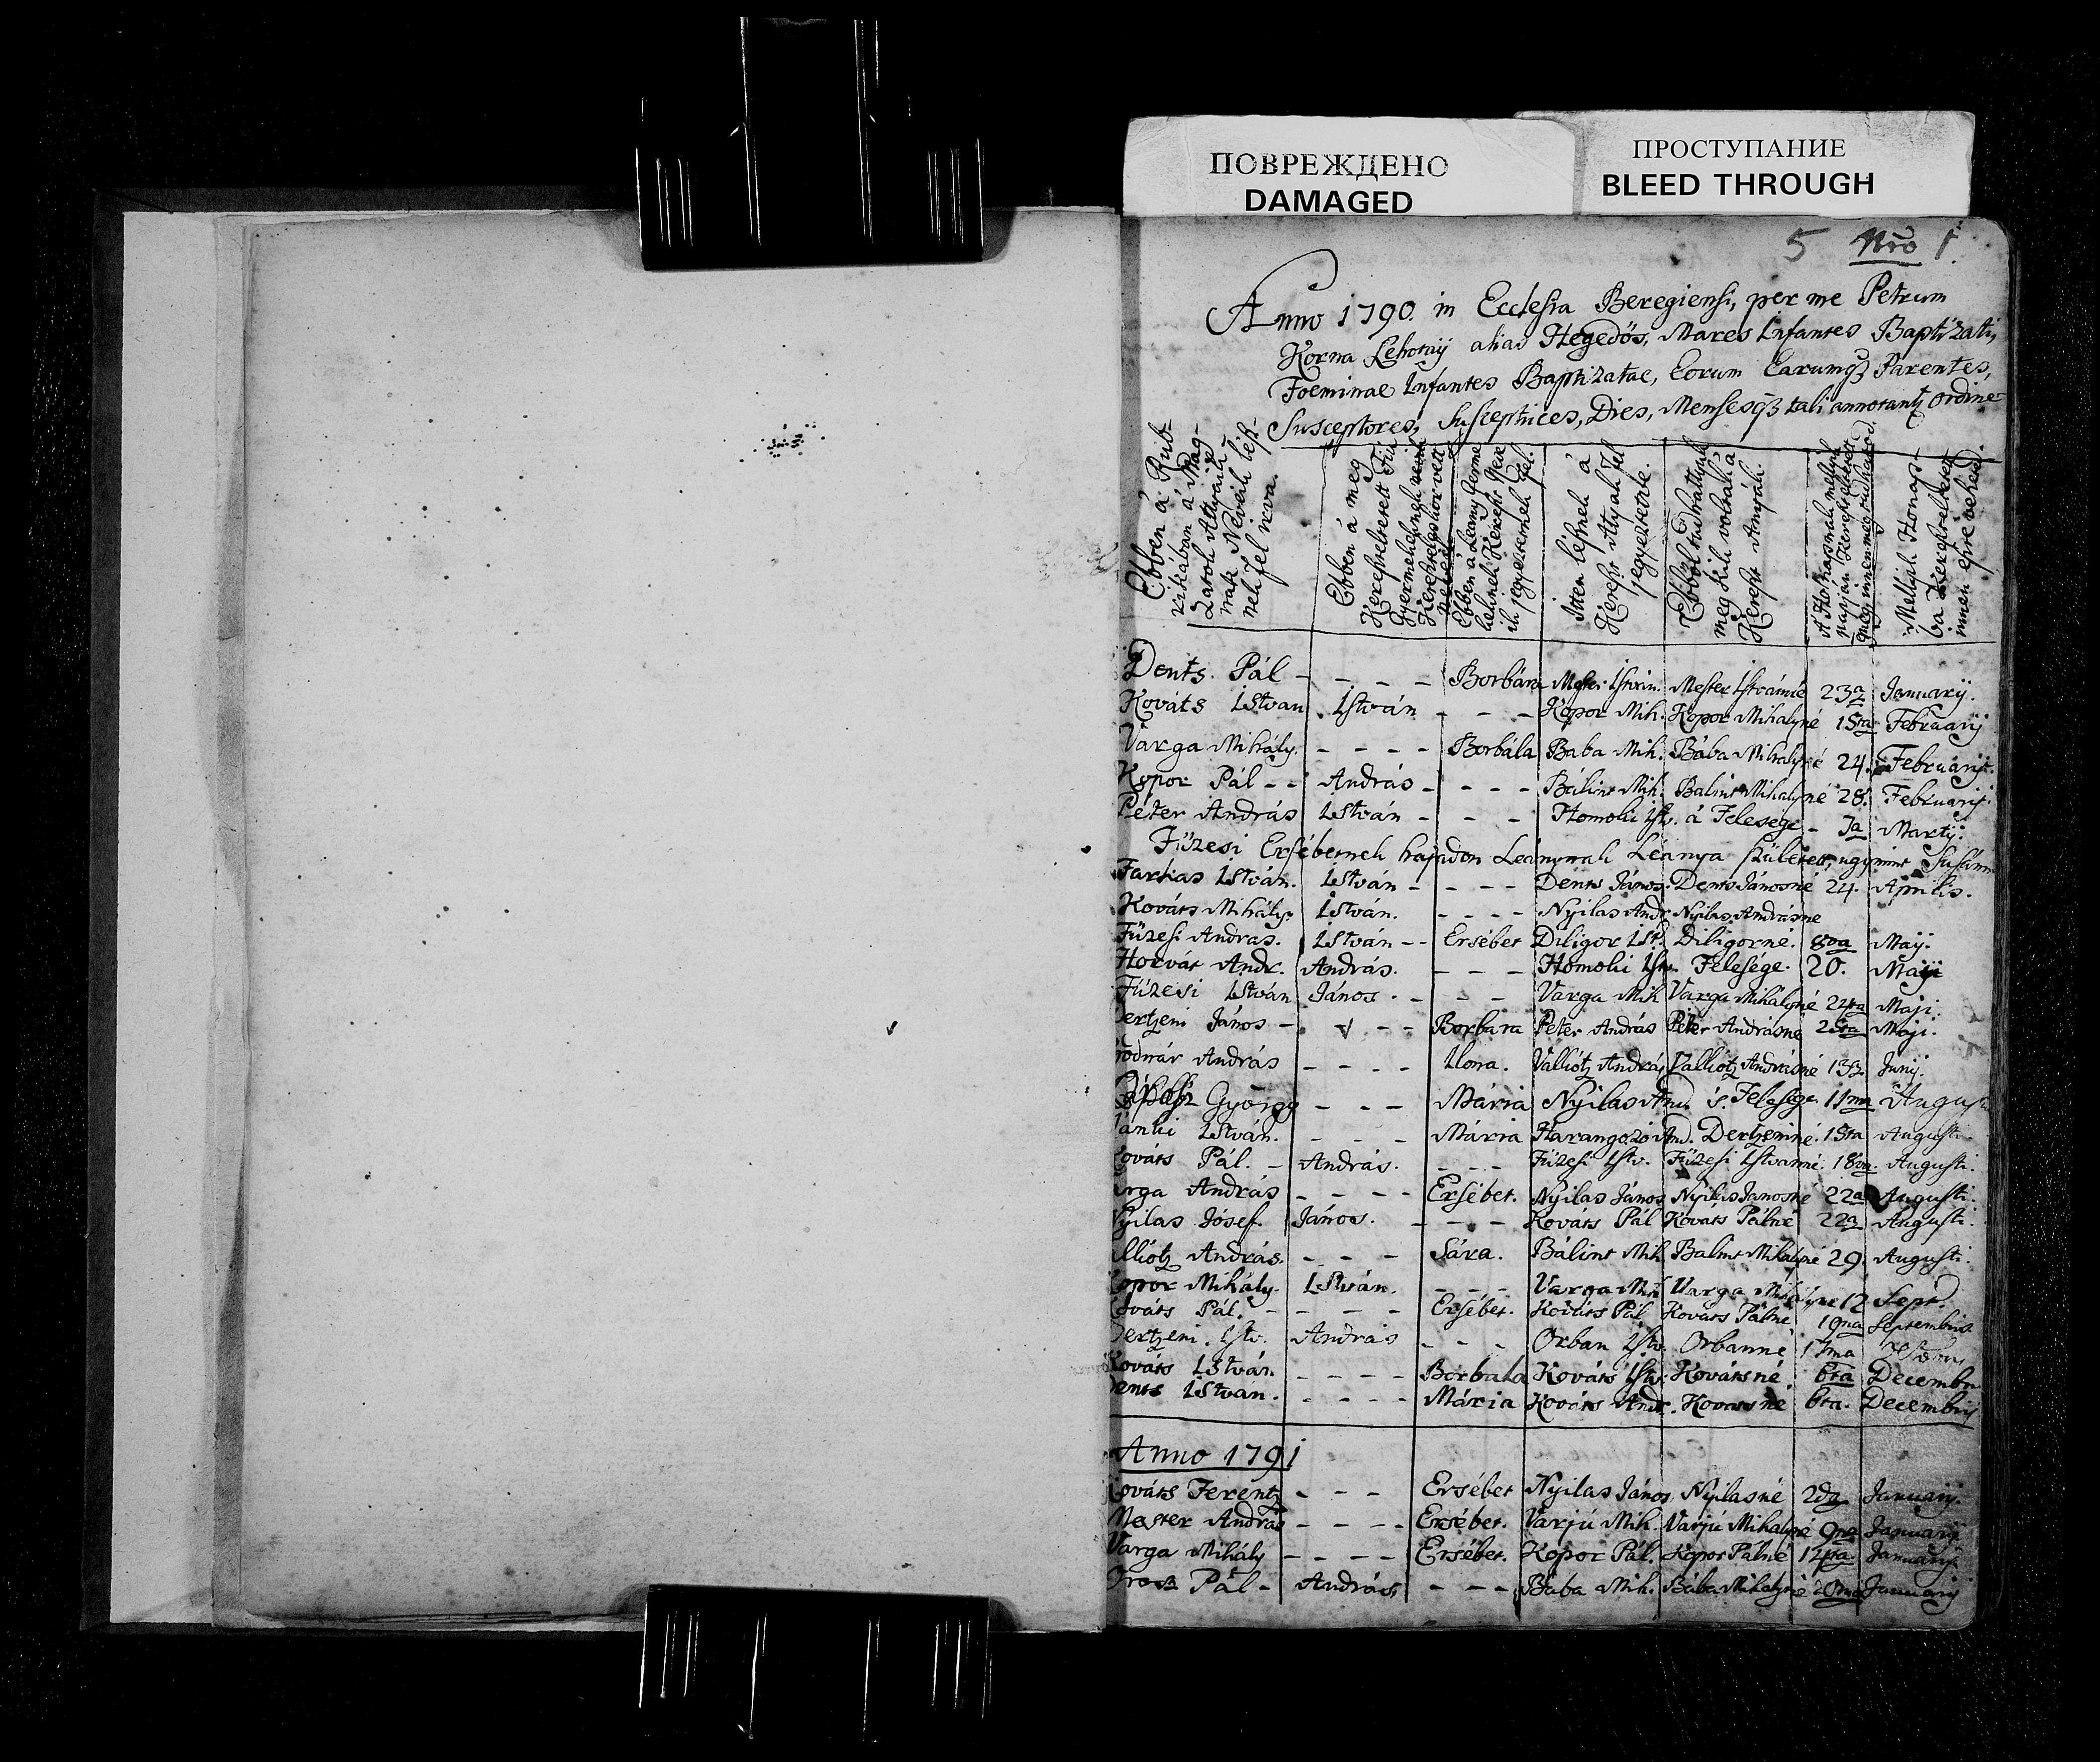 ПОВРЕЖДЕНО
DAMAGED
ПРОСТУПАНИЕ
BLEED THROUGH
5 Nro 1.
Anno 1790. in Ecclesia Beregiensi, per me Petrum
Korna Lehotaÿ alias Hegedös, Mares Infantes Baptizati,
Foeminae Infantes Baptizatae, Eorum Earumq3 Parentes,
Susceptores, Susceptrices, Dies, Mensesq3 tali annotantur ordine
Ebben á Rub-
rikában á Mag-
zatok Attyaik-
nak Neveik lész-
nek fel irva.
Ebben á meg
Kereszteltetett Fiú
Gyermekeknek
Ebben á Leany Gyerme
keknek Kereszt Neve
ik jegyeztetnek fel.
Itten lésznek á
Kereszt Atyák fel
jegyeztetve.
Ebböl tudhattyuk
meg kik voltak á
Kereszt Anyák.
A Honapnak mellyik
napján Kereszteltetett
meg innen meg tudhatod.
Mellyik Honap-
ba Kereszteltetett
innen eszre veheted.
Dents. Pál - - - - Borbára Mester Istvan. Mester Istvánné 23a Januarÿ.
Kováts Istvan István - - - Kopor Mih. Kopor Mihalyné 15ta Februarÿ
Varga Mihály. - - - - Borbála Baba Mih. Bába Mihalyné 24. Februarÿ.
Kopor Pál - - András - - - - Bálint Mih. Balint Mihalyné 28. Februarÿ.
Péter András István - - - Homoki Ist. á Felesege - 7a Martÿ.
Füzesi Ersébetnek hajadon Leanynak Leánya született, ugymint Susánn
Farkas István. István - - - - Dents János. Dents Jánosné 24. Aprilis.
Kováts Mihály. István. - - - - Nyilas Andr. Nyilas Andrásne
Füzesi Andras. István - - Ersébet Diligor Ist. Diligorné. 8va Maÿ.
Horvát Andr. András. - - - Homoki Ist. Felesége. 20. Maÿ
Füzesi István János. - - - Varga Mih Varga Mihályné 24ta Maji.
ertzeni János - - - Borbara Péter András Péter Andrásne 25ta Maji.
odnár András - - - - Ilona. Valliótz András Valliótz Andrásné 13a Junÿ.
György - - - Mária Nyilas And. é. Felesége 11ma August
ánki István. - - - Mária Harangozó And. Dertzeniné. 15ta Augusti.
ováts Pál. - András. - - - Füzesi Istv. Füzesi Istvanné. 18va. Augusti.
arga András - - - - Ersébet. Nyilas János Nyilas Janosné 22a Augusti.
yilas Jósef. János. - - - Kováts Pál Kováts Pálné 22a Augusti.
lliótz András. - - - Sára. Bálint Mih. Balint Mihalyné 29. Augusti.
opor Mihály. István. - - - Varga Mih. Varga Mihályné 12 Sept.
ováts Pál. - - - - Ersébet. Kováts Pál Kovats Pálné 19na Septembris
ertzeni. Istv. András - - - Orban Istv. Orbanné 17ma
Kováts István. - - - - Borbala Kováts Istv. Kovátsné 6ta Decembr
ents Istvan. - - - - Mária Kováts Andr. Kovatsné 6ta. Decembrÿ
Anno 1791
Kováts Ferentz - - - Ersébet Nyilas János Nyilasné 2da Januarÿ.
Mester András - - - - Ersébet. Varjú Mih. Varjú Mihalyné 9na Januarÿ
Varga Mihály - - - - Ersébet. Kopor Pál. Kopor Pálné 14ta. Januarÿ.
Orosz Pál - András - - - Baba Mih. Bába Mihalyné Januarÿ